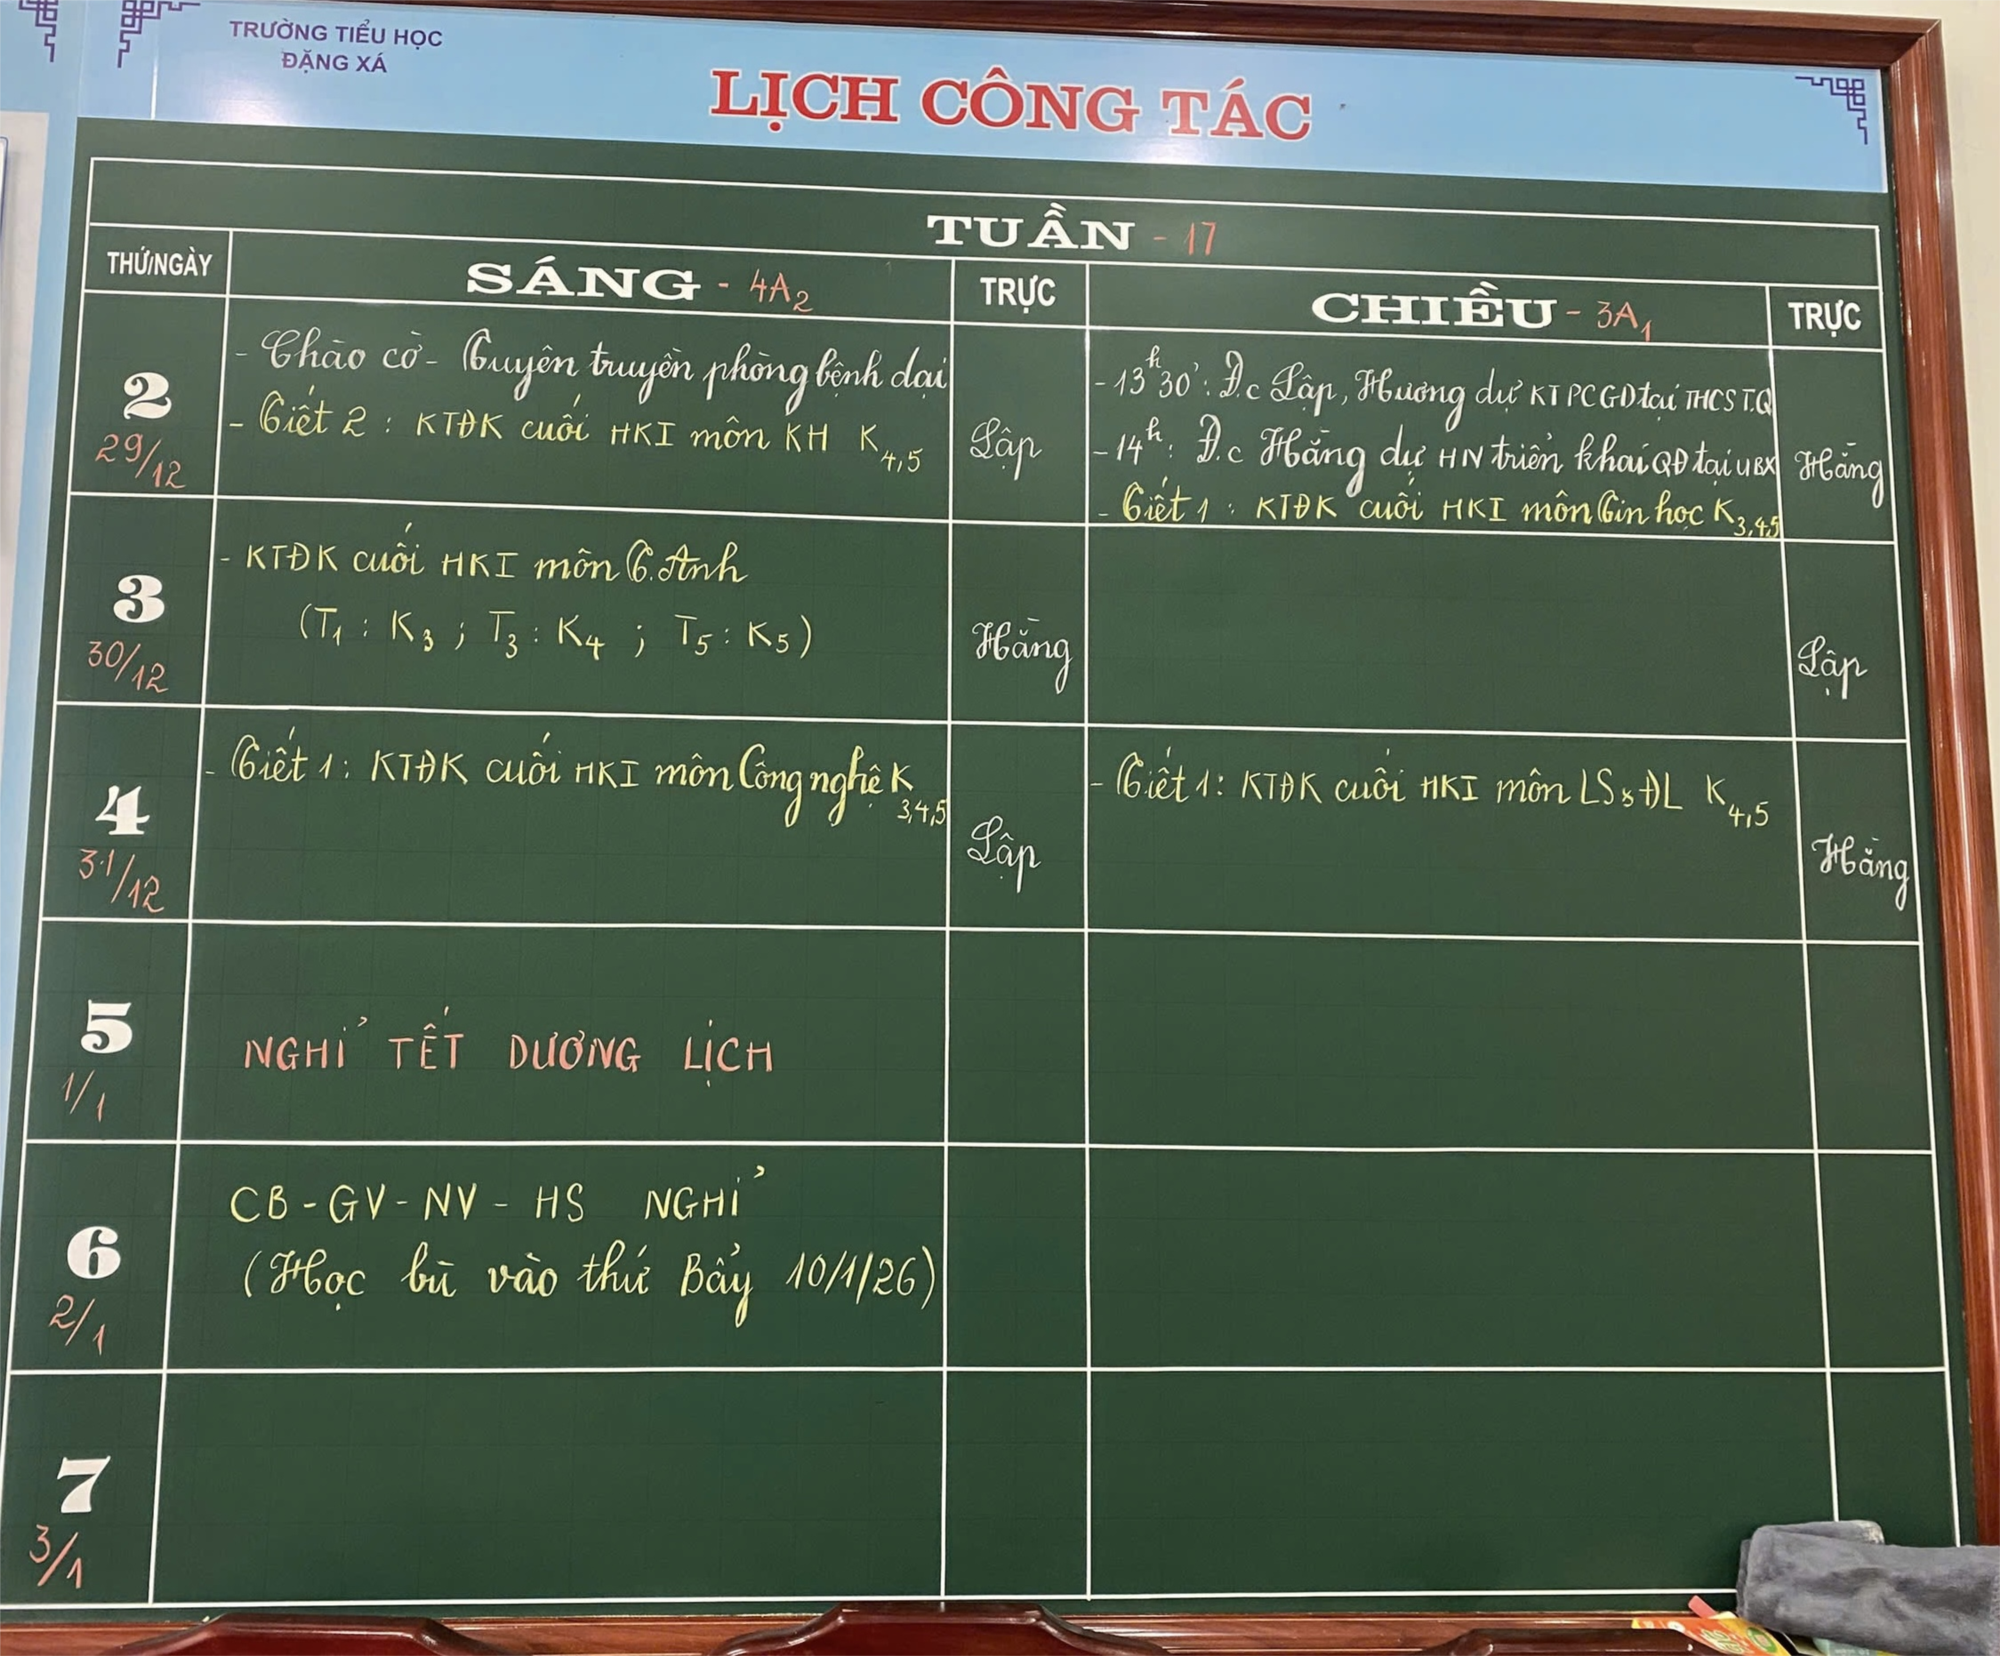 TRƯỜNG TIỂU HỌC
ĐẶNG XÁ
LỊCH CÔNG TÁC
TUẦN - 17
THỨ/NGÀY
SÁNG - 4A2
TRỰC
CHIỀU - 3A1
TRỰC
2
29/12
- Chào cờ - Tuyên truyền phòng bệnh dại
- Tiết 2 : KTĐK cuối HKI môn KH K4,5
Lập
- 13h30': Đ.c Lập, Hương dự KT PCGD tại THCS T.Q
- 14h: Đ.c Hằng dự HN triển khai QĐ tại UBX
- Tiết 1 : KTĐK cuối HKI môn Tin học K3,4,5
Hằng
3
30/12
- KTĐK cuối HKI môn T.Anh
(T1 : K3 ; T3 : K4 ; T5 : K5)
Hằng
Lập
4
31/12
- Tiết 1: KTĐK cuối HKI môn Công nghệ K3,4,5
Lập
- Tiết 1: KTĐK cuối HKI môn LS&ĐL K4,5
Hằng
5
1/1
NGHỈ TẾT DƯƠNG LỊCH
6
2/1
CB - GV - NV - HS NGHỈ
(Học bù vào thứ Bảy 10/1/26)
7
3/1